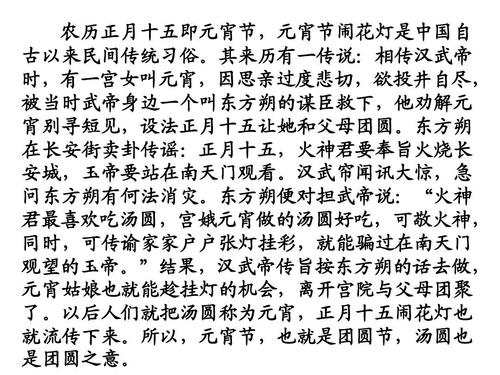 农历正月十五即元宵节，元宵节闹花灯是中国自
古以来民间传统习俗。其来历有一传说：相传汉武帝
时，有一宫女叫元宵，因思亲过度悲切，欲投井自尽，
被当时武帝身边一个叫东方朔的谋臣救下，他劝解元
宵别寻短见，设法正月十五让她和父母团圆。东方朔
在长安街卖卦传谣：正月十五，火神君要奉旨火烧长
安城，玉帝要站在南天门观看。汉武帘闻讯大惊，急
问东方朔有何法消灾。东方朔便对担武帝说：“火神
君最喜欢吃汤圆，宫娥元宵做的汤圆好吃，可敬火神，
同时，可传谕家家户户张灯挂彩，就能骗过在南天门
观望的玉帝。”结果，汉武帝传旨按东方朔的话去做，
元宵姑娘也就能趁挂灯的机会，离开宫院与父母团聚
了。以后人们就把汤圆称为元宵，正月十五闹花灯也
就流传下来。所以，元宵节，也就是团圆节，汤圆也
是团圆之意。